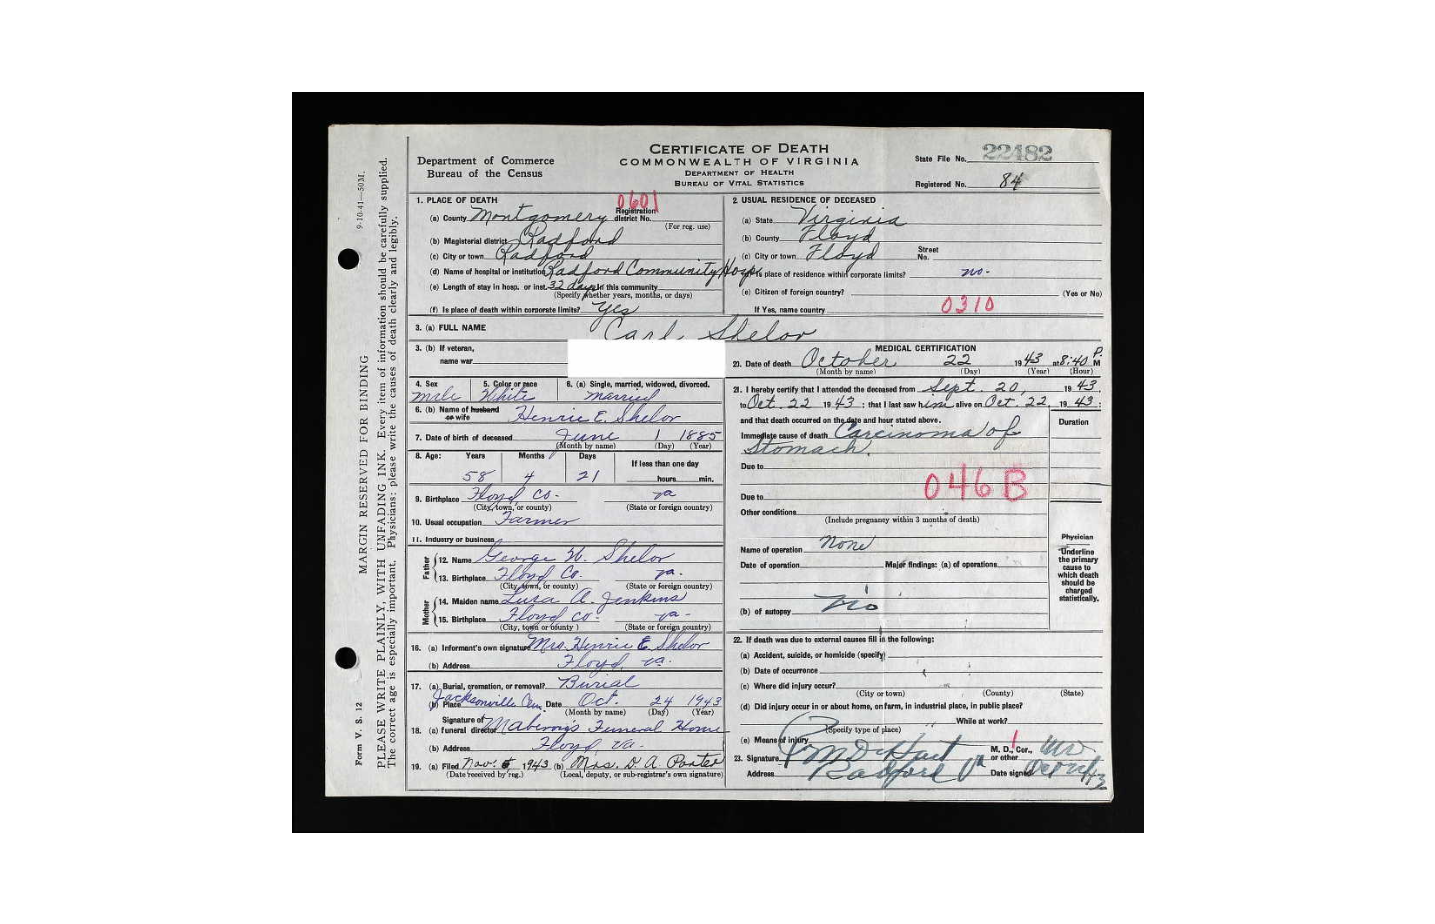 CERTIFICATE OF DEATH
COMMONWEALTH OF VIRGINIA
DEPARTMENT OF HEALTH
BUREAU OF VITAL STATISTICS
Department of Commerce
Bureau of the Census
State File No. 22482
Registered No. 84
9-10-41—50M.
Form V. S. 12
MARGIN RESERVED FOR BINDING
PLEASE WRITE PLAINLY, WITH UNFADING INK. Every item of information should be carefully supplied.
The correct age is especially important. Physicians: please write the causes of death clearly and legibly.
1. PLACE OF DEATH 0601
(a) County Montgomery Registration district No.
(For reg. use)
(b) Magisterial district Radford
(c) City or town Radford
(d) Name of hospital or institution Radford Community Hosp.
(e) Length of stay in hosp. or inst. 32 days In this community
(Specify whether years, months, or days)
(f) Is place of death within corporate limits? Yes
2. USUAL RESIDENCE OF DECEASED
(a) State Virginia
(b) County Floyd
(c) City or town Floyd Street No.
Is place of residence within corporate limits? no.
(e) Citizen of foreign country? (Yes or No)
If Yes, name country 0310
3. (a) FULL NAME Carl Shelor
3. (b) If veteran,
name war
4. Sex 5. Color or race 6. (a) Single, married, widowed, divorced.
male White married
6. (b) Name of husband or wife Henrie E. Shelor
7. Date of birth of deceased June 1 1885
(Month by name) (Day) (Year)
8. Age: Years Months Days If less than one day
58 4 21 hours min.
9. Birthplace Floyd Co. va
(City, town, or county) (State or foreign country)
10. Usual occupation Farmer
11. Industry or business
Father
12. Name George W. Shelor
13. Birthplace Floyd Co. va.
(City, town, or county) (State or foreign country)
Mother
14. Maiden name Lura A. Jenkins
15. Birthplace Floyd co. va.
(City, town or county) (State or foreign country)
16. (a) Informant's own signature Mrs. Henrie E Shelor
(b) Address Floyd, va.
17. (a) Burial, cremation, or removal? Burial
(b) Place Jacksonville Cem. Date Oct. 24 1943
(Month by name) (Day) (Year)
18. (a) Signature of funeral director Maberry's Funeral Home
(b) Address Floyd Va.
19. (a) Filed Nov. 5 1943 (b) Mrs. D. A. Porter
(Date received by reg.) (Local, deputy, or sub-registrar's own signature)
MEDICAL CERTIFICATION
20. Date of death October 22 1943 at 8:40 P. M
(Month by name) (Day) (Year) (Hour)
21. I hereby certify that I attended the deceased from Sept. 20, 1943.
to Oct. 22 1943; that I last saw him alive on Oct. 22, 1943;
and that death occurred on the date and hour stated above.
Duration
Immediate cause of death Carcinoma of
Stomach.
Due to
046B
Due to
Other conditions
(Include pregnancy within 3 months of death)
Name of operation None
Date of operation Major findings: (a) of operations
(b) of autopsy no
Physician
Underline the primary cause to which death should be charged statistically.
22. If death was due to external causes fill in the following:
(a) Accident, suicide, or homicide (specify)
(b) Date of occurrence
(c) Where did injury occur?
(City or town) (County) (State)
(d) Did injury occur in or about home, on farm, in industrial place, in public place?
While at work?
(Specify type of place)
(e) Means of injury
23. Signature DeHart M. D., Cor., or other MD
Address Radford Va Date signed